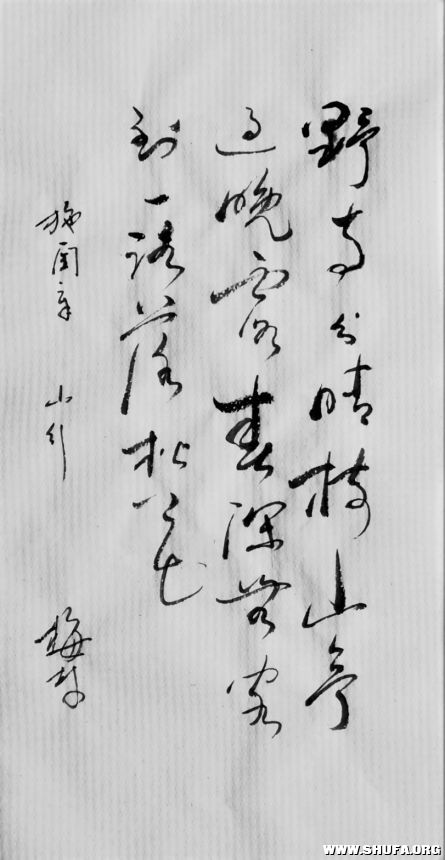 野寺分晴树山亭
过晚霞春深無客
到一路落松花
施闰章 山行
梅村
WWW.SHUFA.ORG